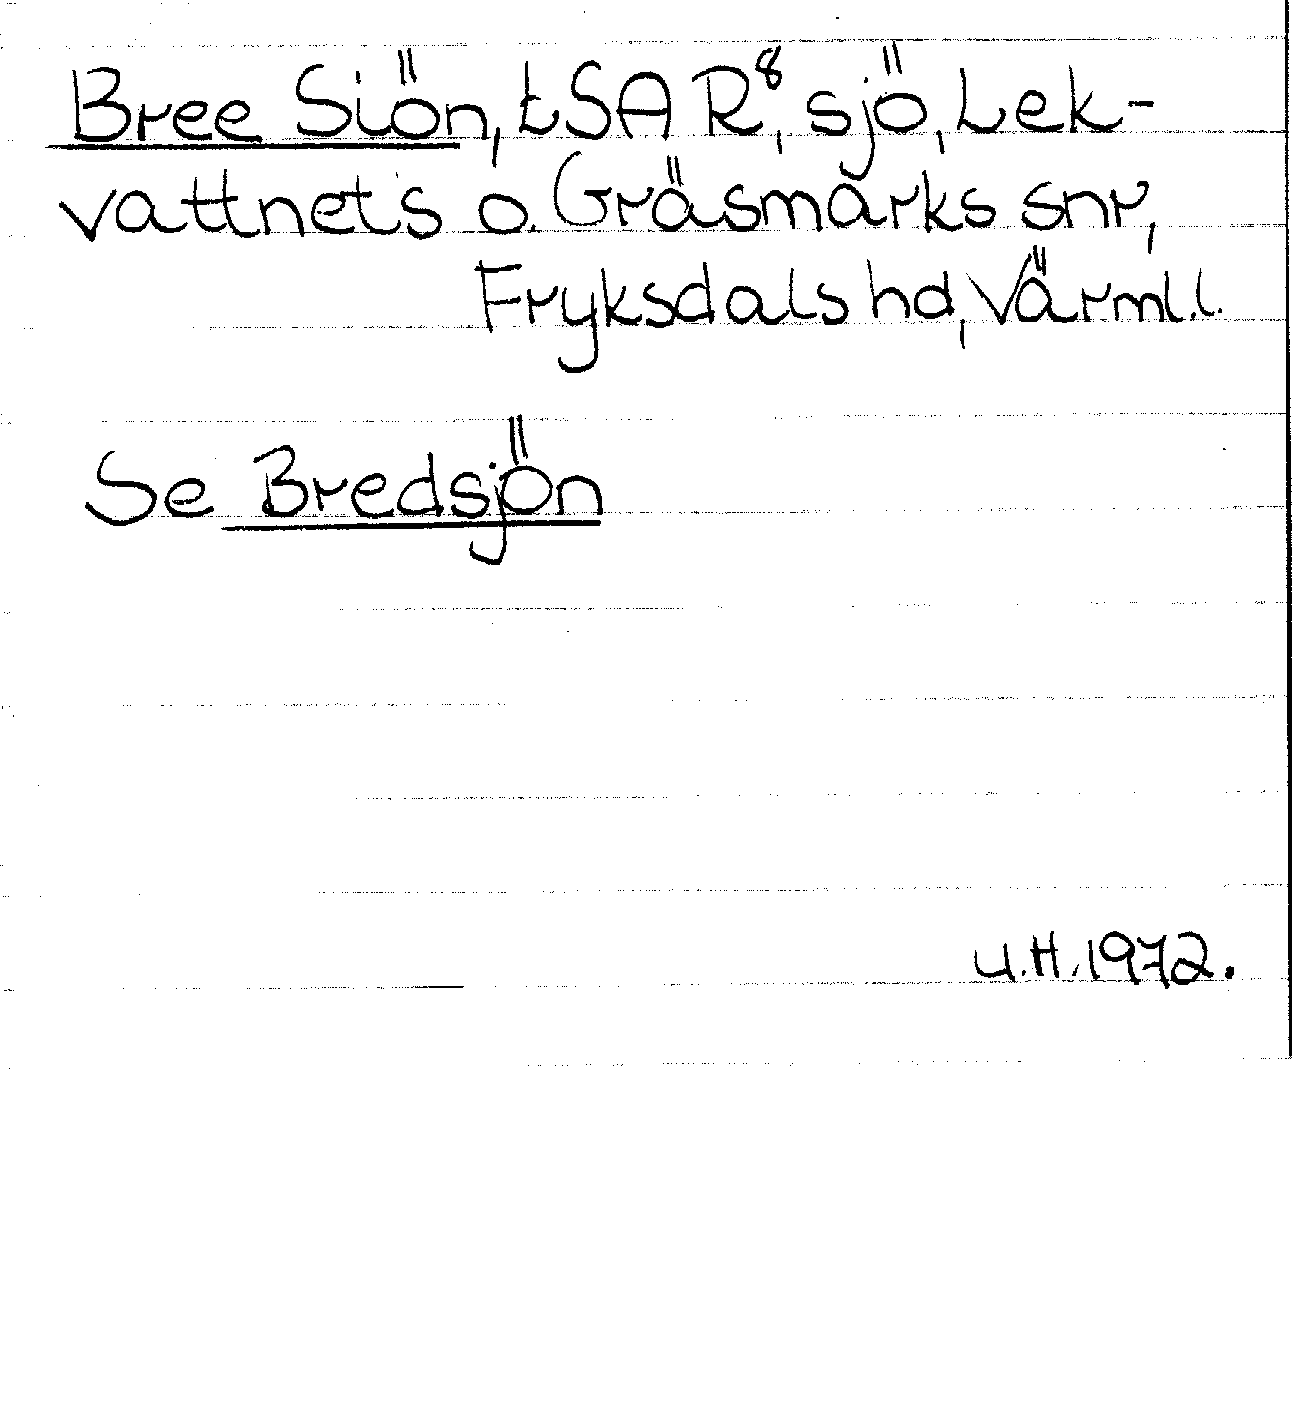 Bree Siön, tSAR⁸, sjö, Lek-
vattnets o. Gräsmarks snr,
Fryksdals hd, Värml.l.
Se Bredsjön
U.H. 1972.